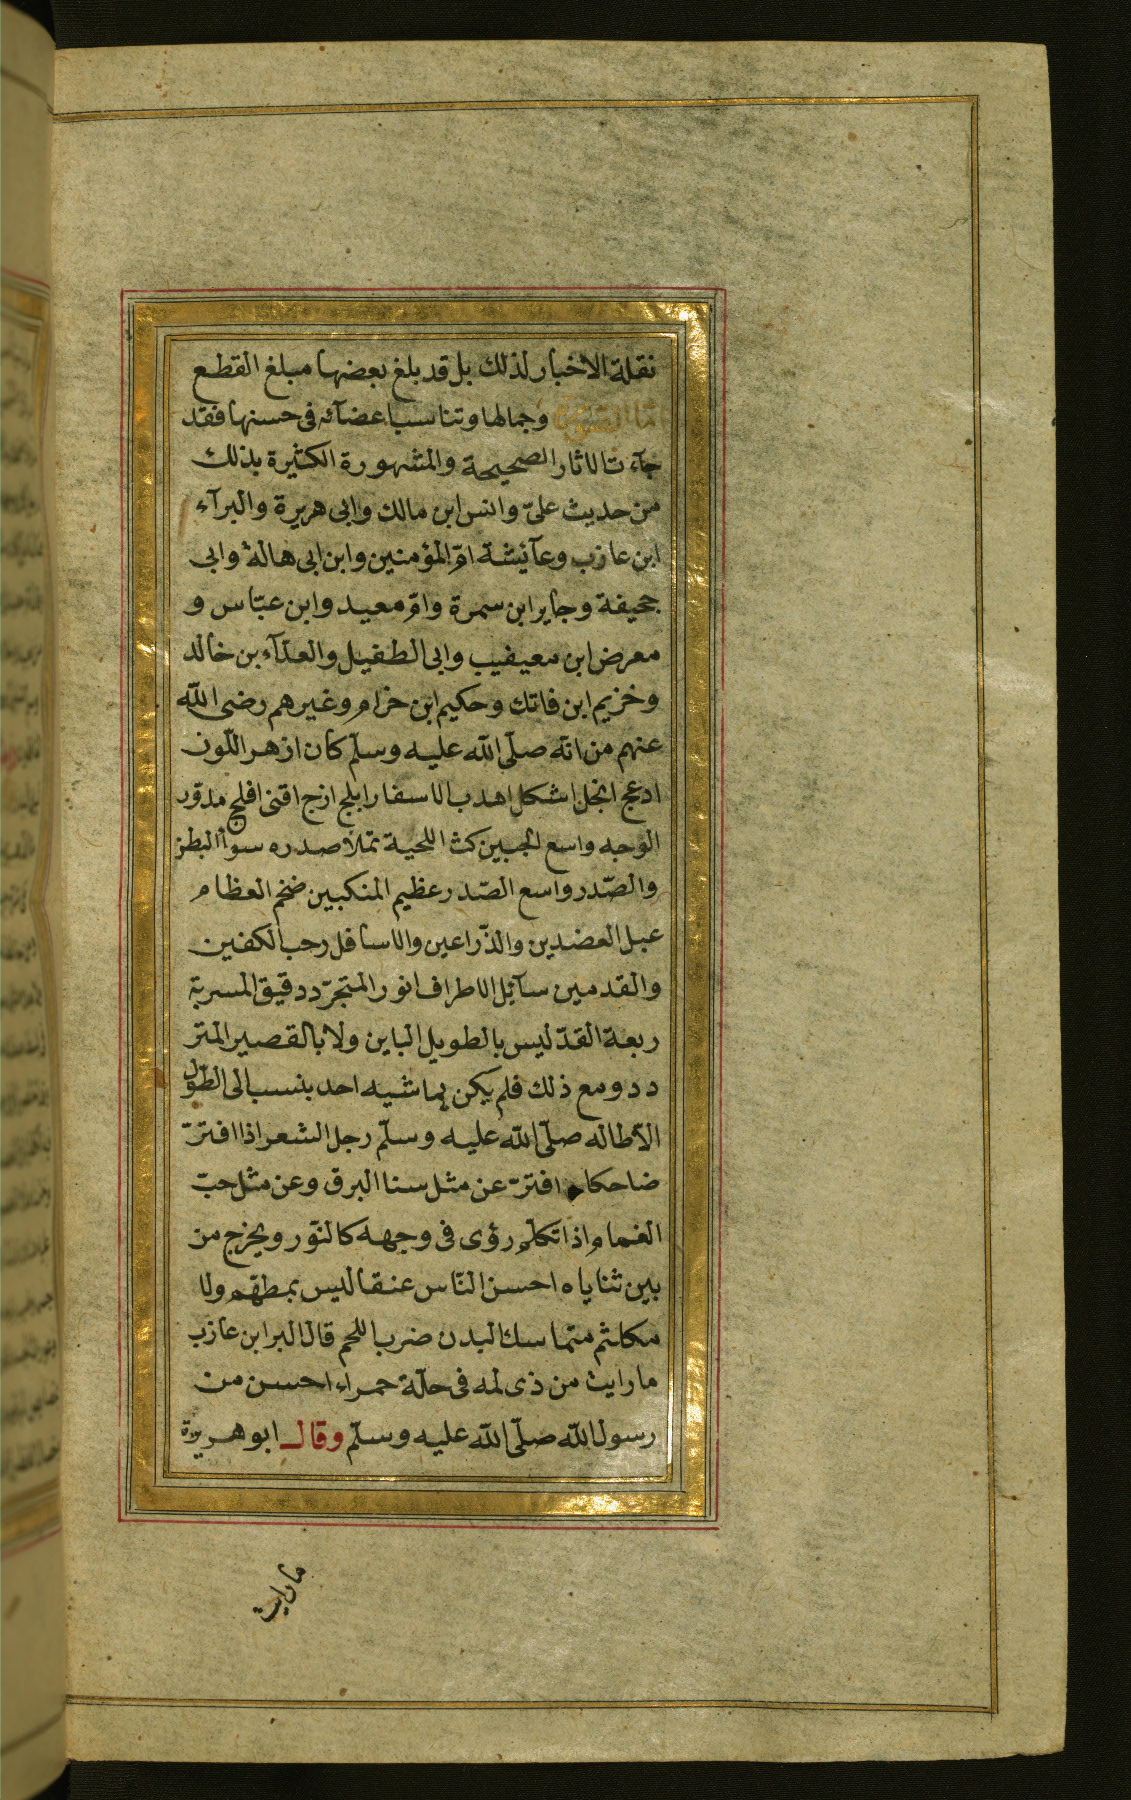 نقلة الاخبار لذلك بل قد بلغ بعضها مبلغ القطع
امّا الصورة وجمالها وتناسب اعضآئه فى حسنها فقد
جآءت الاثار الصحيحة والمشهورة الكثيرة بذلك
من حديث علىّ وانس ابن مالك وابى هريرة والبرآء
ابن عازب وعآئشة امّ المؤمنين وابن ابى هالة وابى
جحيفة وجابر ابن سمرة وامّ معبد وابن عبّاس و
معرض ابن معيقيب وابى الطفيل والعدّآء بن خالد
وخزيم ابن فاتك وحكيم ابن حزام وغيرهم رضى الله
عنهم من انّه صلّى الله عليه وسلّم كان ازهر اللّون
ادعج انجل اشكل اهدب الاسفار ابلج ازج اقنى افلج مدوّر
الوجه واسع الجبين كث اللحية تملأ صدره سوآ البطن
والصّدر واسع الصّدر عظيم المنكبين ضخم العظام
عبل العضدين والذّراعين والاسافل رحب الكفين
والقدمين سآئل الاطراف انور المتجرّد دقيق المسربة
ربعة القدّ ليس بالطويل الباين ولا بالقصير المتر
دد ومع ذلك فلم يكن يماشيه احد ينسب الى الطّول
الّا طاله صلّى الله عليه وسلّم رجل الشعر اذا افترّ
ضاحكا افترّ عن مثل سنا البرق وعن مثل حبّ
الغمام واذا تكلّم رؤى فى وجهه كالنّور ويخرج من
بين ثناياه احسن النّاس عنقا ليس بمطهّم ولا
مكلثم متماسك البدن ضرب اللحم قال البرا ابن عازب
ما رايت من ذى لمه فى حلّة حمراء احسن من
رسول الله صلّى الله عليه وسلّم وقال ابو هريرة
ما رايت